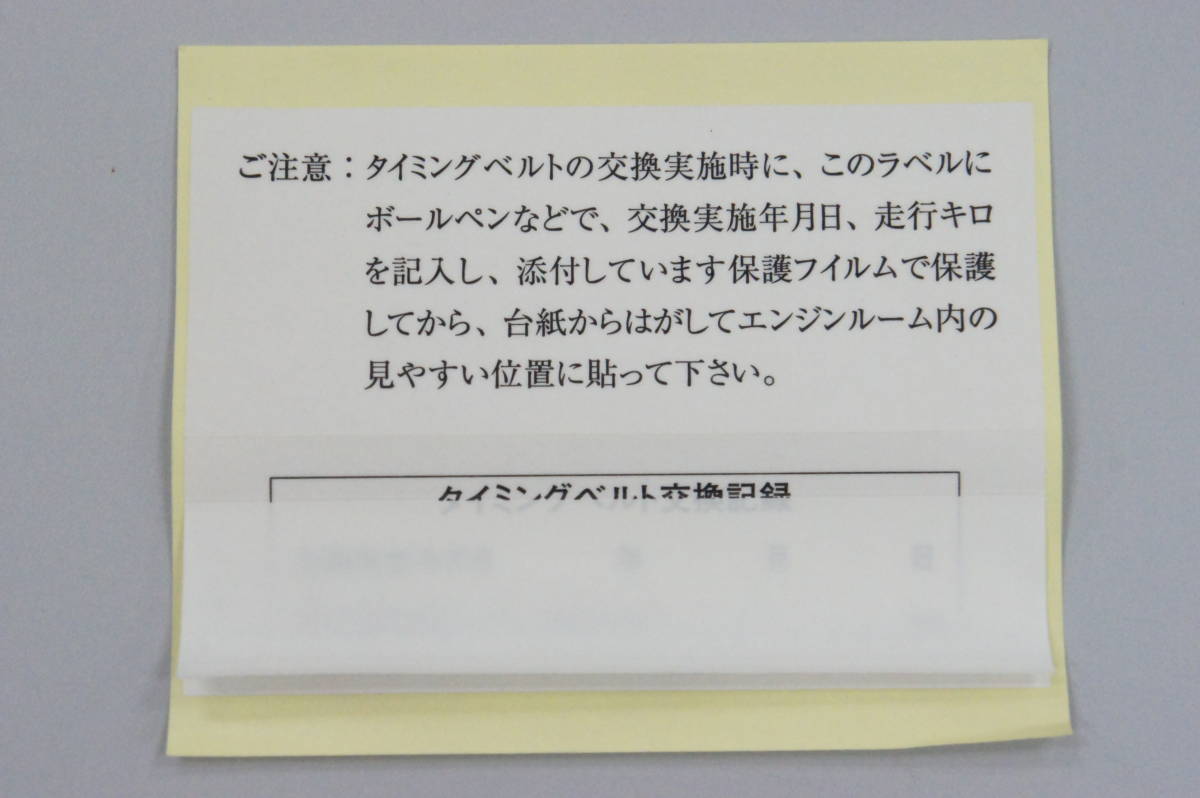 ご注意：タイミングベルトの交換実施時に、このラベルに
ボールペンなどで、交換実施年月日、走行キロ
を記入し、添付しています保護フイルムで保護
してから、台紙からはがしてエンジンルーム内の
見やすい位置に貼って下さい。
タイミングベルト交換記録
年 月 日